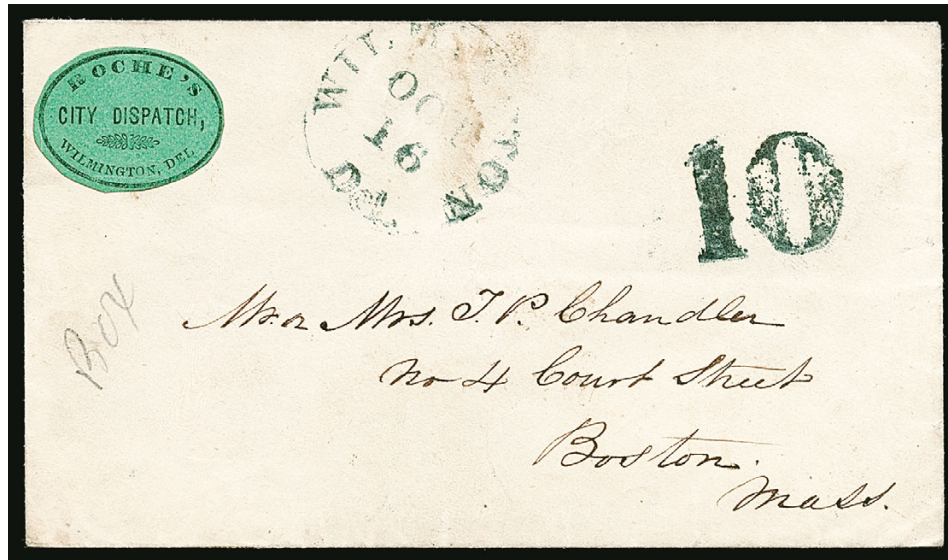 ROCHE'S
CITY DISPATCH,
WILMINGTON, DEL.
WILMINGTON DEL
OCT
16
10
Box
Mr. or Mrs. T. P. Chandler
No 4 Court Street
Boston.
Mass.